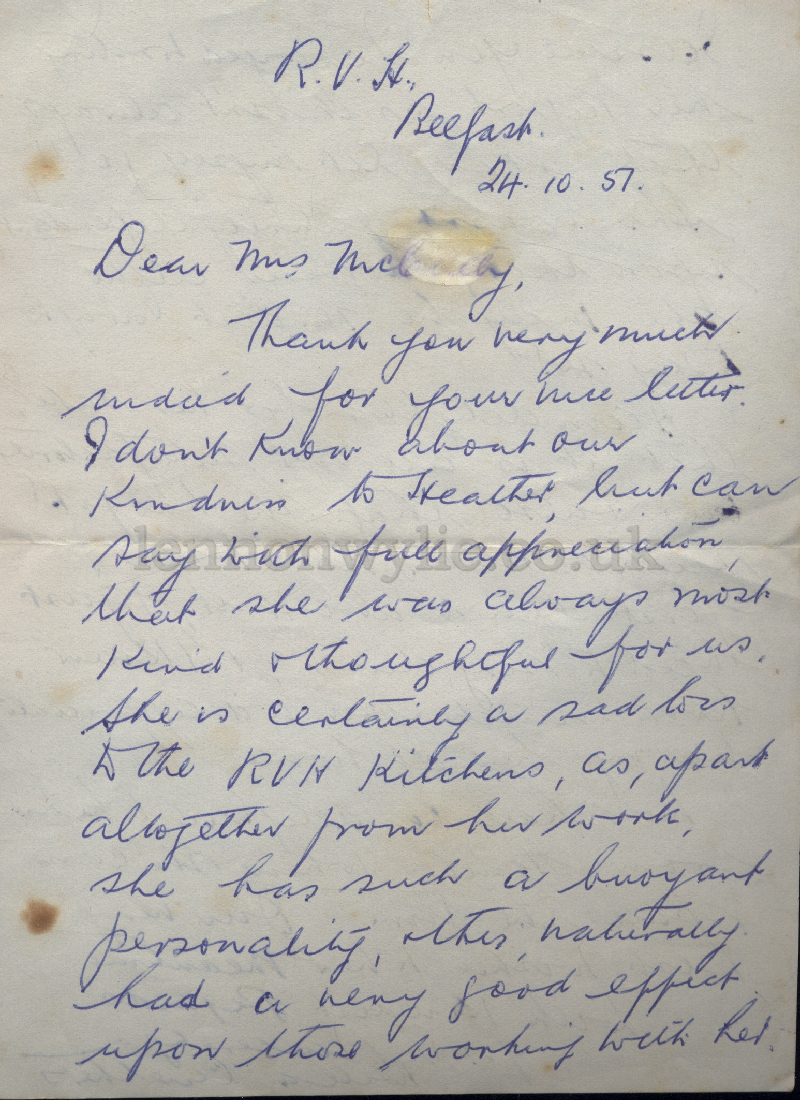 R. V. H.,
Belfast.
24. 10. 57.
Dear Mrs
Thank you very much
indeed for your nice letter.
I don't know about our
kindness to Heather, but can
say with full appreciation,
lennonwylie.co.uk
that she was always most
kind & thoughtful for us.
She is certainly a sad loss
to the RVH Kitchens, as, apart
altogether from her work,
she has such a buoyant
personality, & this, naturally
had a very good effect
upon those working with her.